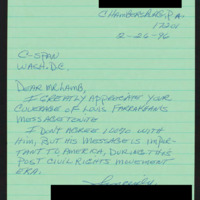 CHAMBERSBURG, PA.
17201
2-26-96
C-SPAN
WASH. D.C.
DEAR MR. LAMB,
I GREATLY APPRECIATE YOUR
COVERAGE OF LOUIS FARRAKHAN'S
MOSTS ABSTRUTE
I DON'T AGREE WITH
HIM, BUT HIS MESSAGE IS IMPOR-
TANT TO AMERICA, DURING THIS
POST CIVIL RIGHTS MOVEMENT
ERA.